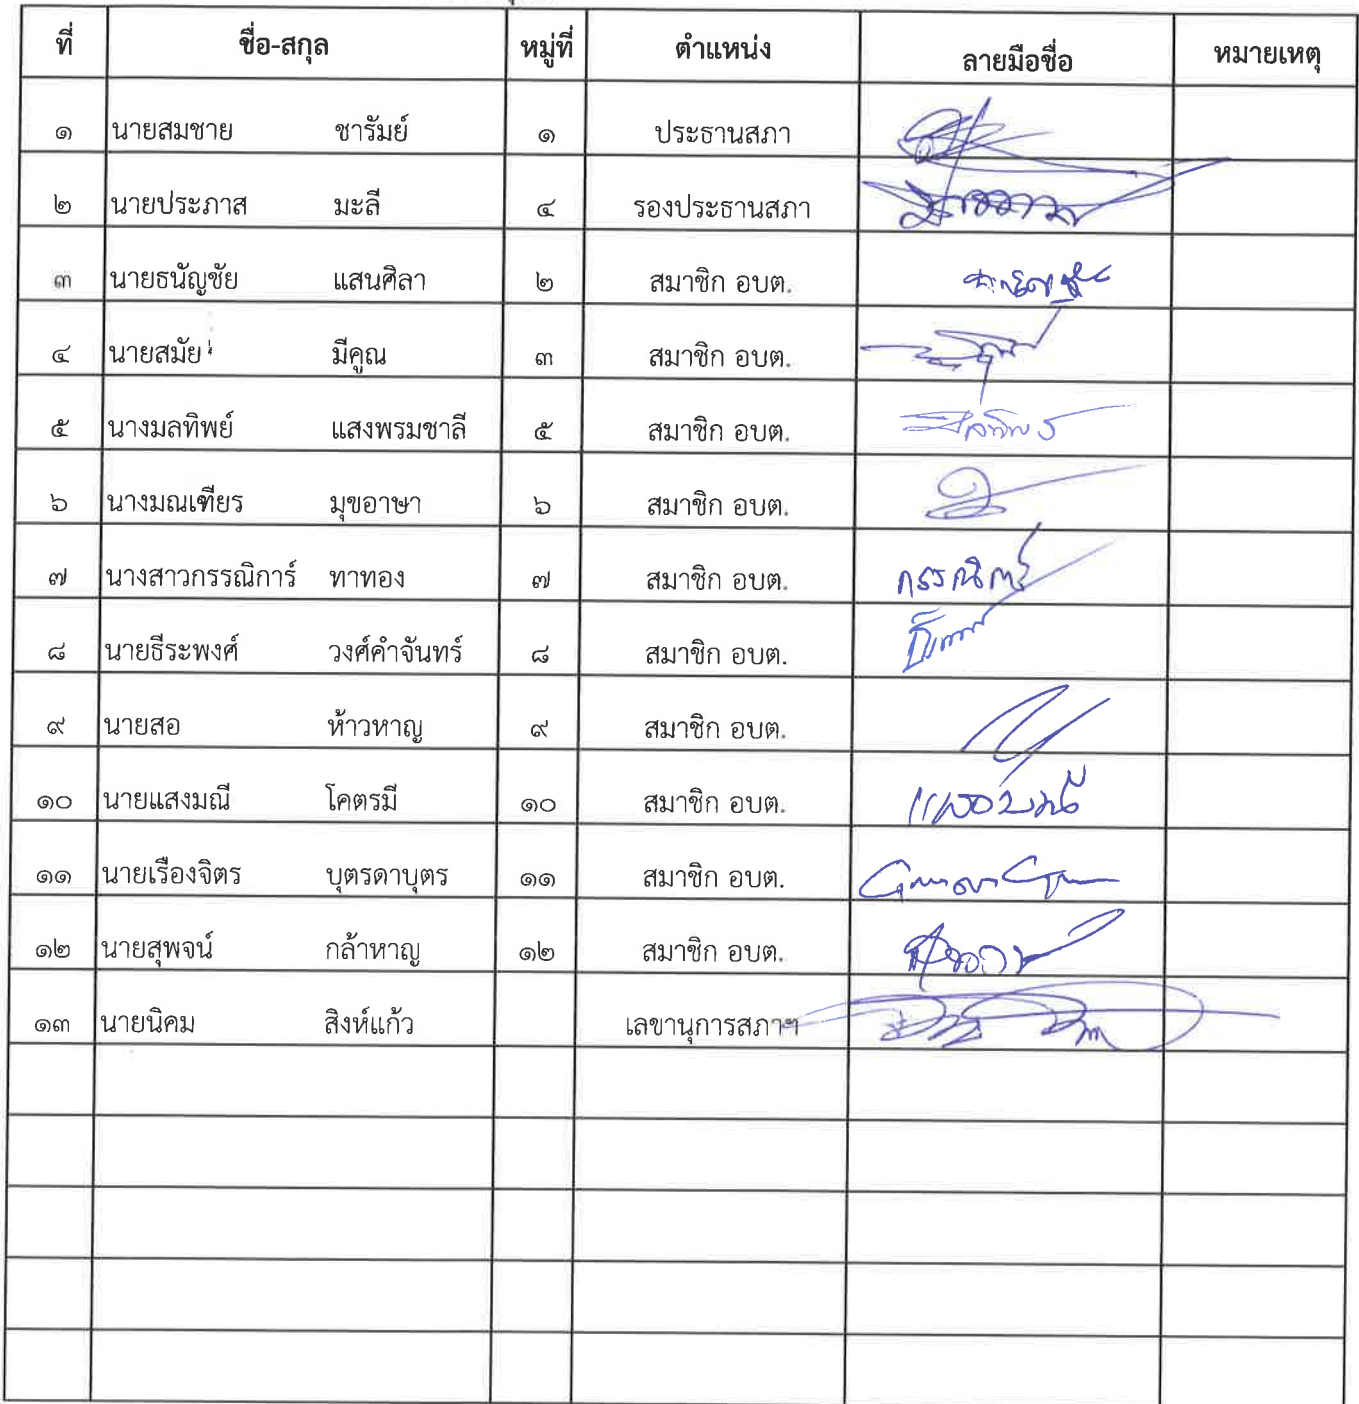 ที่ ชื่อ-สกุล หมู่ที่ ตำแหน่ง ลายมือชื่อ หมายเหตุ
๑ นายสมชาย ชารัมย์ ๑ ประธานสภา
๒ นายประภาส มะลี ๔ รองประธานสภา
๓ นายธนัญชัย แสนศิลา ๒ สมาชิก อบต.
๔ นายสมัย มีคูณ ๓ สมาชิก อบต.
๕ นางมลทิพย์ แสงพรมชาลี ๕ สมาชิก อบต.
๖ นางมณเฑียร มุขอาษา ๖ สมาชิก อบต.
๗ นางสาวกรรณิการ์ ทาทอง ๗ สมาชิก อบต. กรรณิการ์
๘ นายธีระพงศ์ วงศ์คำจันทร์ ๘ สมาชิก อบต.
๙ นายสอ ห้าวหาญ ๙ สมาชิก อบต.
๑๐ นายแสงมณี โคตรมี ๑๐ สมาชิก อบต.
๑๑ นายเรืองจิตร บุตรดาบุตร ๑๑ สมาชิก อบต.
๑๒ นายสุพจน์ กล้าหาญ ๑๒ สมาชิก อบต.
๑๓ นายนิคม สิงห์แก้ว เลขานุการสภาฯ